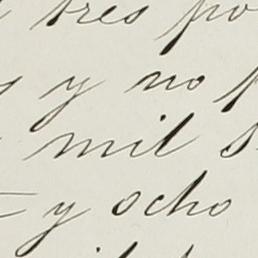 tres po
y no
mil s
y ocho